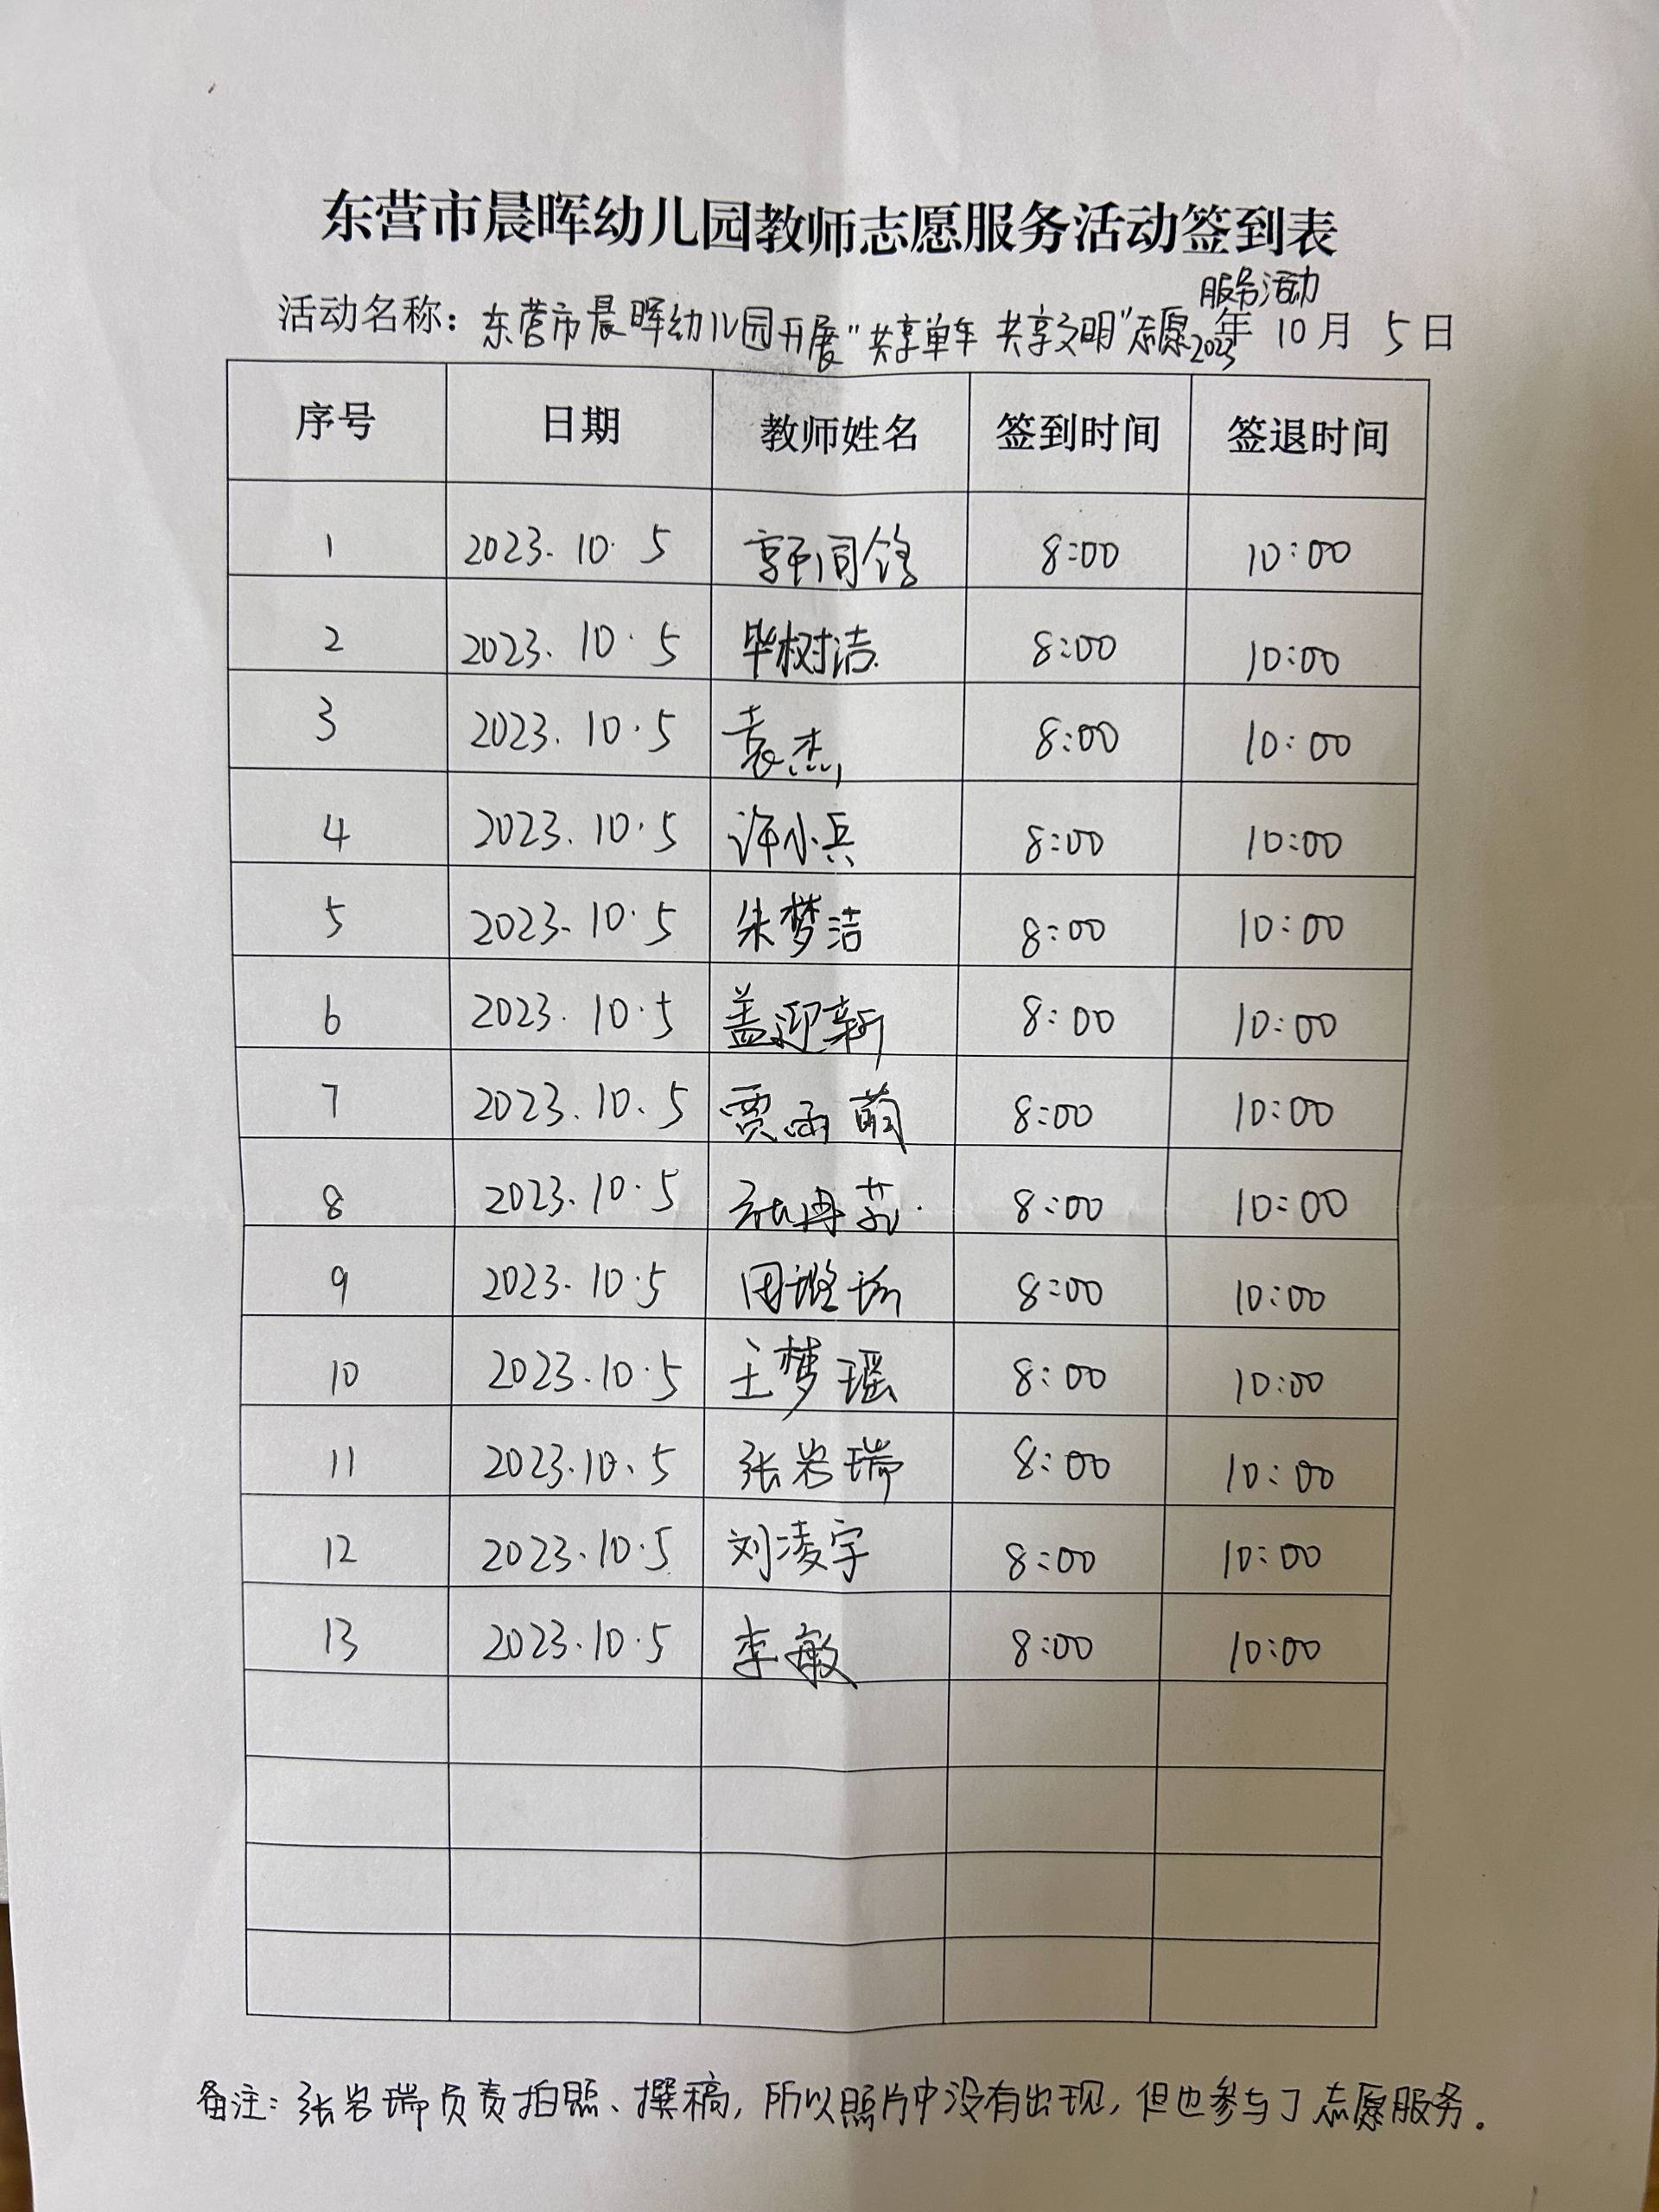 东营市晨晖幼儿园教师志愿服务活动签到表
服务活动
活动名称：东营市晨晖幼儿园开展"共享单车 共享文明"志愿 2023年 10月 5日
序号 日期 教师姓名 签到时间 签退时间
1 2023.10.5 8:00 10:00
2 2023.10.5 毕树洁 8:00 10:00
3 2023.10.5 袁杰 8:00 10:00
4 2023.10.5 许小兵 8:00 10:00
5 2023.10.5 朱梦洁 8:00 10:00
6 2023.10.5 盖迎新 8:00 10:00
7 2023.10.5 贾雨萌 8:00 10:00
8 2023.10.5 8:00 10:00
9 2023.10.5 8:00 10:00
10 2023.10.5 王梦瑶 8:00 10:00
11 2023.10.5 张岩瑞 8:00 10:00
12 2023.10.5 刘凌宇 8:00 10:00
13 2023.10.5 李敏 8:00 10:00
备注：张岩瑞负责拍照、撰稿，所以照片中没有出现，但也参与了志愿服务。